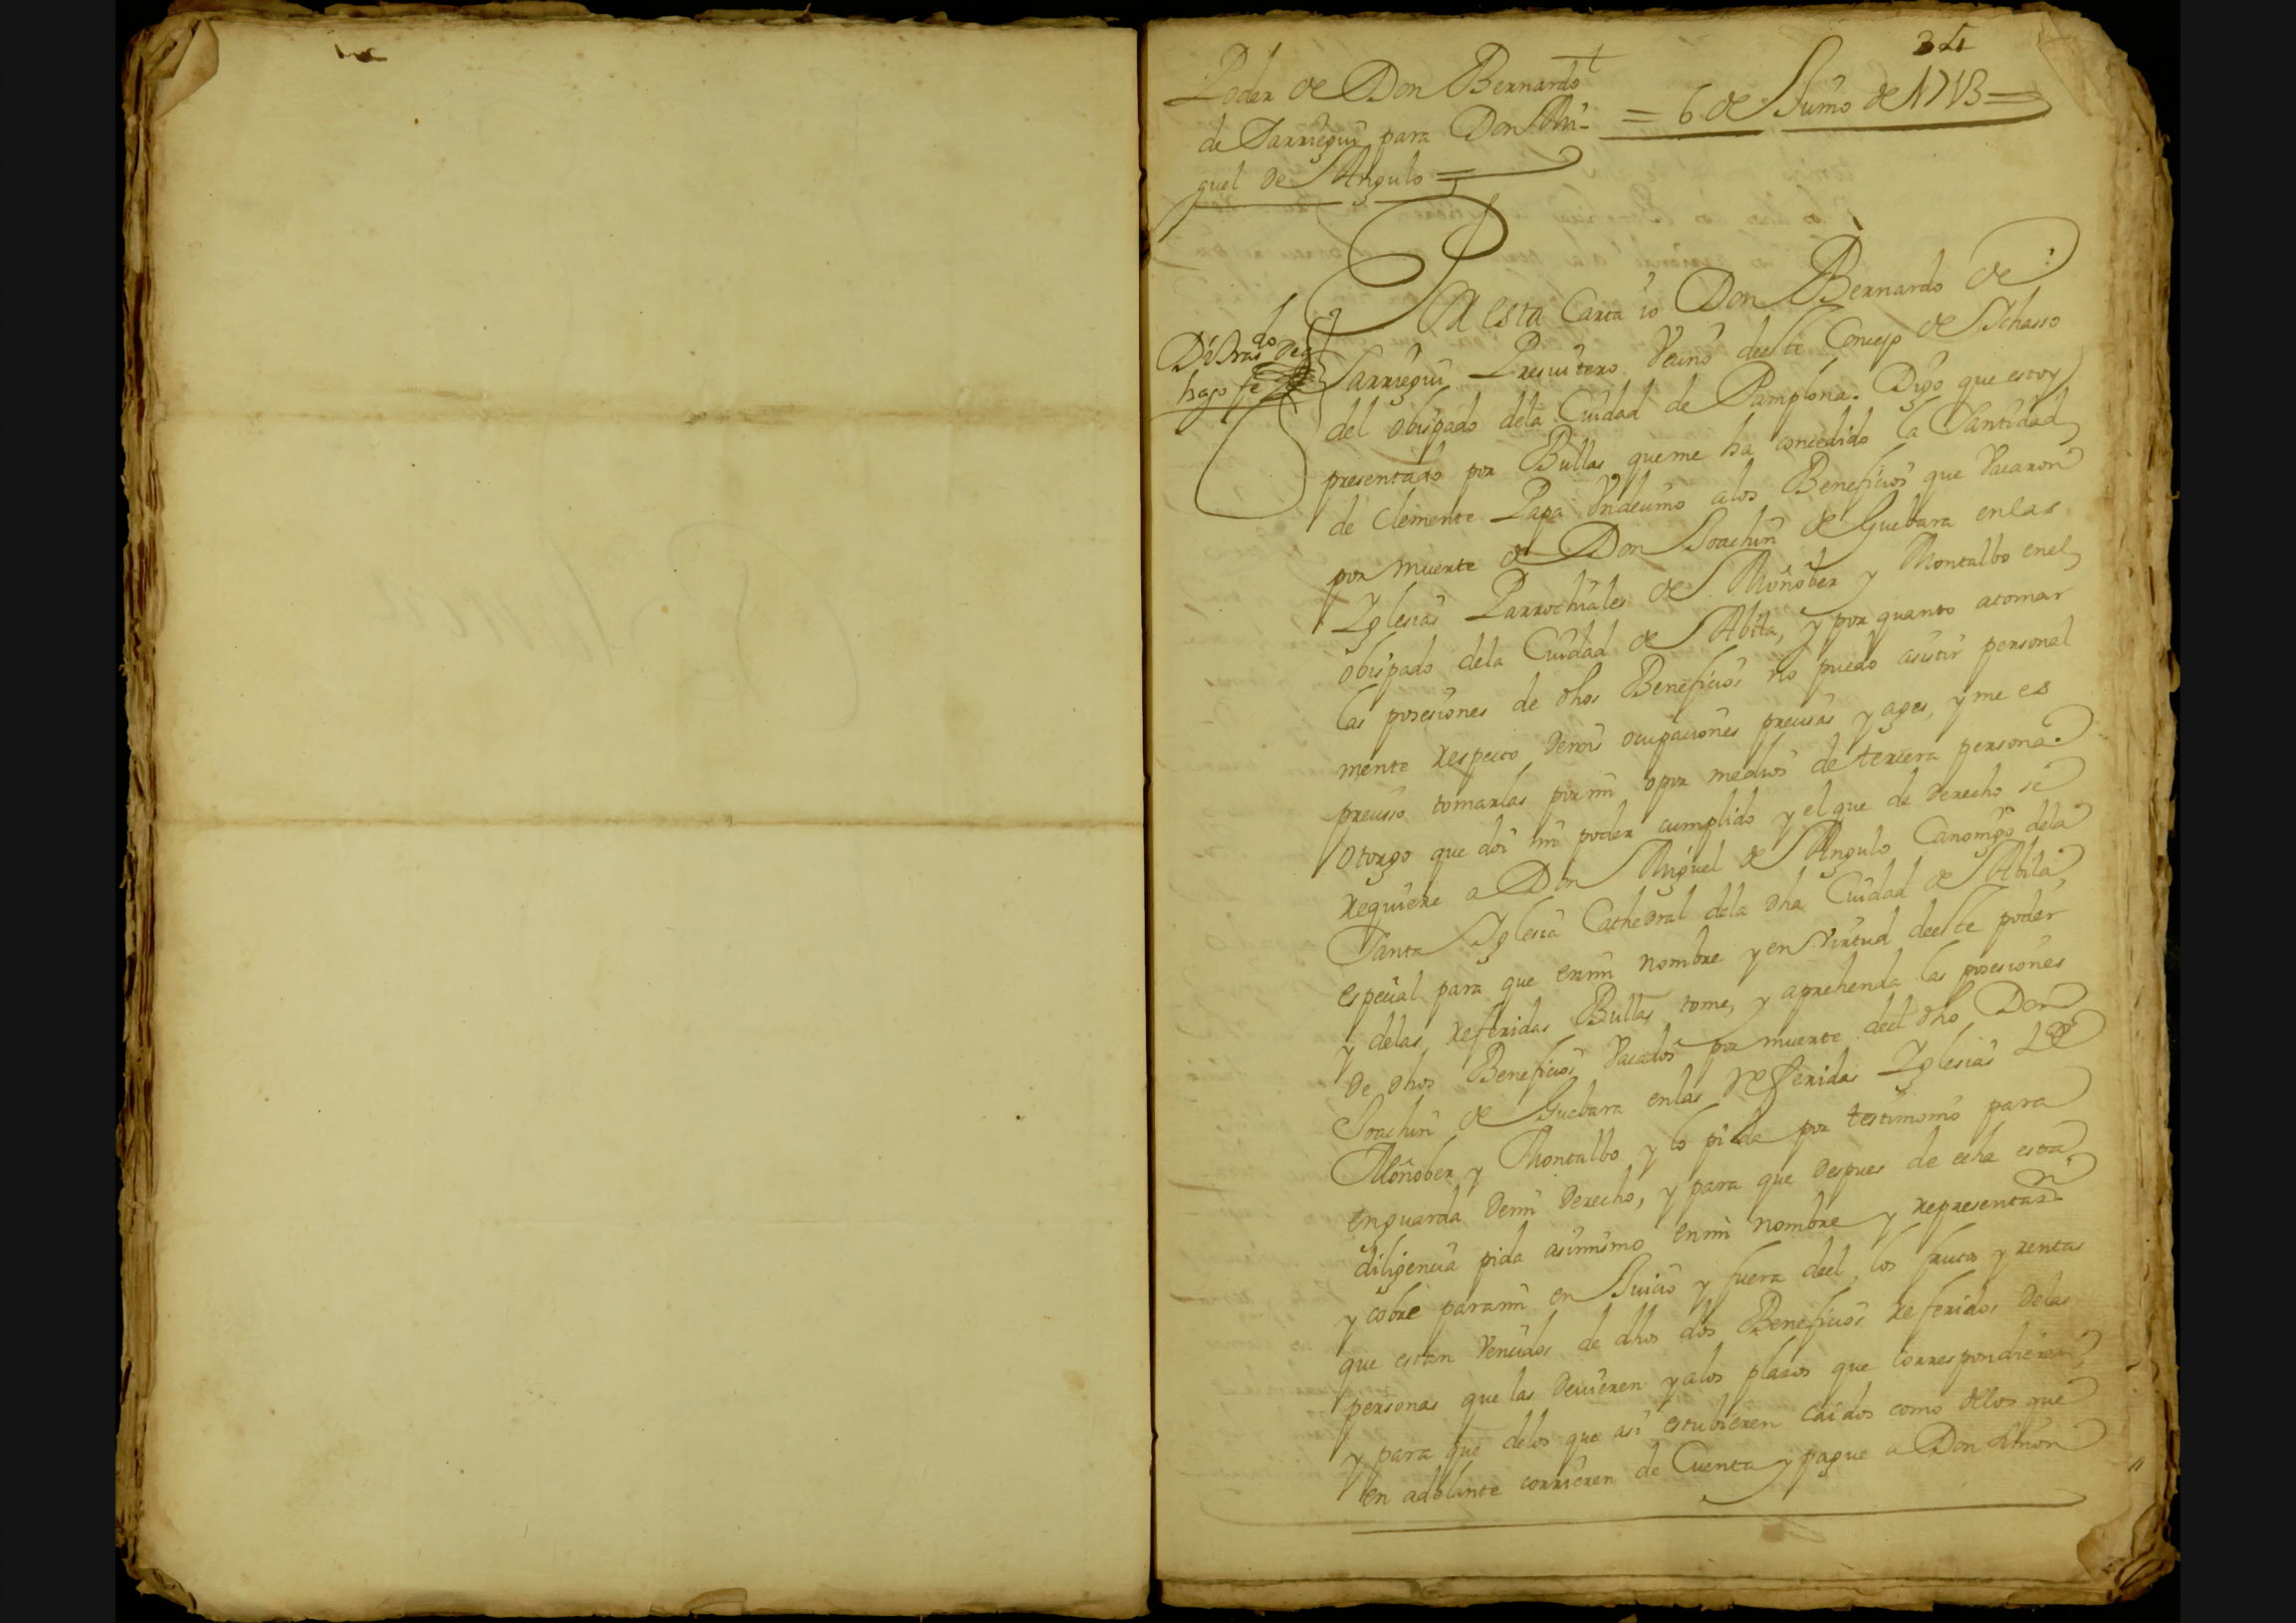 34
Poder de Don Bernardo
de Sarriegui para Don Mi-
guel de Angulo =
= 6 de Junio de 1713 =
Por esta Carta io Don Bernardo de
Sarriegui Presuitero Vecino deeste Concejo de Ichasso
del obispado dela Ciudad de Pamplona. Digo que estoy
presentado por Bullas que me ha concedido la Santidad
de Clemente Papa Undecimo alos Beneficios que Vacaron
por muerte de Don Joachin de Guebara enlas
Yglesias Parrochiales de Moñober y Montalbo enel
obispado dela Ciudad de Abila, y por quanto atomar
las posesiones de dhos Beneficios no puedo asistir personal
mente respecto demis ocupaciones precisas y ages, y me es
precisso tomarlas por mi o por medios de tercera persona.
Otorgo que doi mi poder cumplido y el que de derecho se
requiere a Don Miguel de Angulo Canonigo dela
Santa Iglesia Cathedral dela dha Ciudad de Abila,
especial para que enmi nombre y en virtud deeste poder
y delas referidas Bullas tome, y aprehenda las posesiones
de dhos Beneficios Vacados por muerte deel dho Don
Joachin de Guebara enlas referidas Yglesias de
Moñober y Montalbo y lo pida por testimonio para
enguarda demi derecho, y para que despues de echa esta
diligencia pida asimismo enmi nombre y representas.n
y cobre parami en Juicio y fuera deel los frutos y rentas
que estan Vencidos de dhos dos Beneficios referidos delas
personas que las devieren y alos plazos que correspondieren,
y para que delos que asi estubieren caidos como delos que
en adelante corrieren de Cuenta y pague a Don Simon
do
hago fe